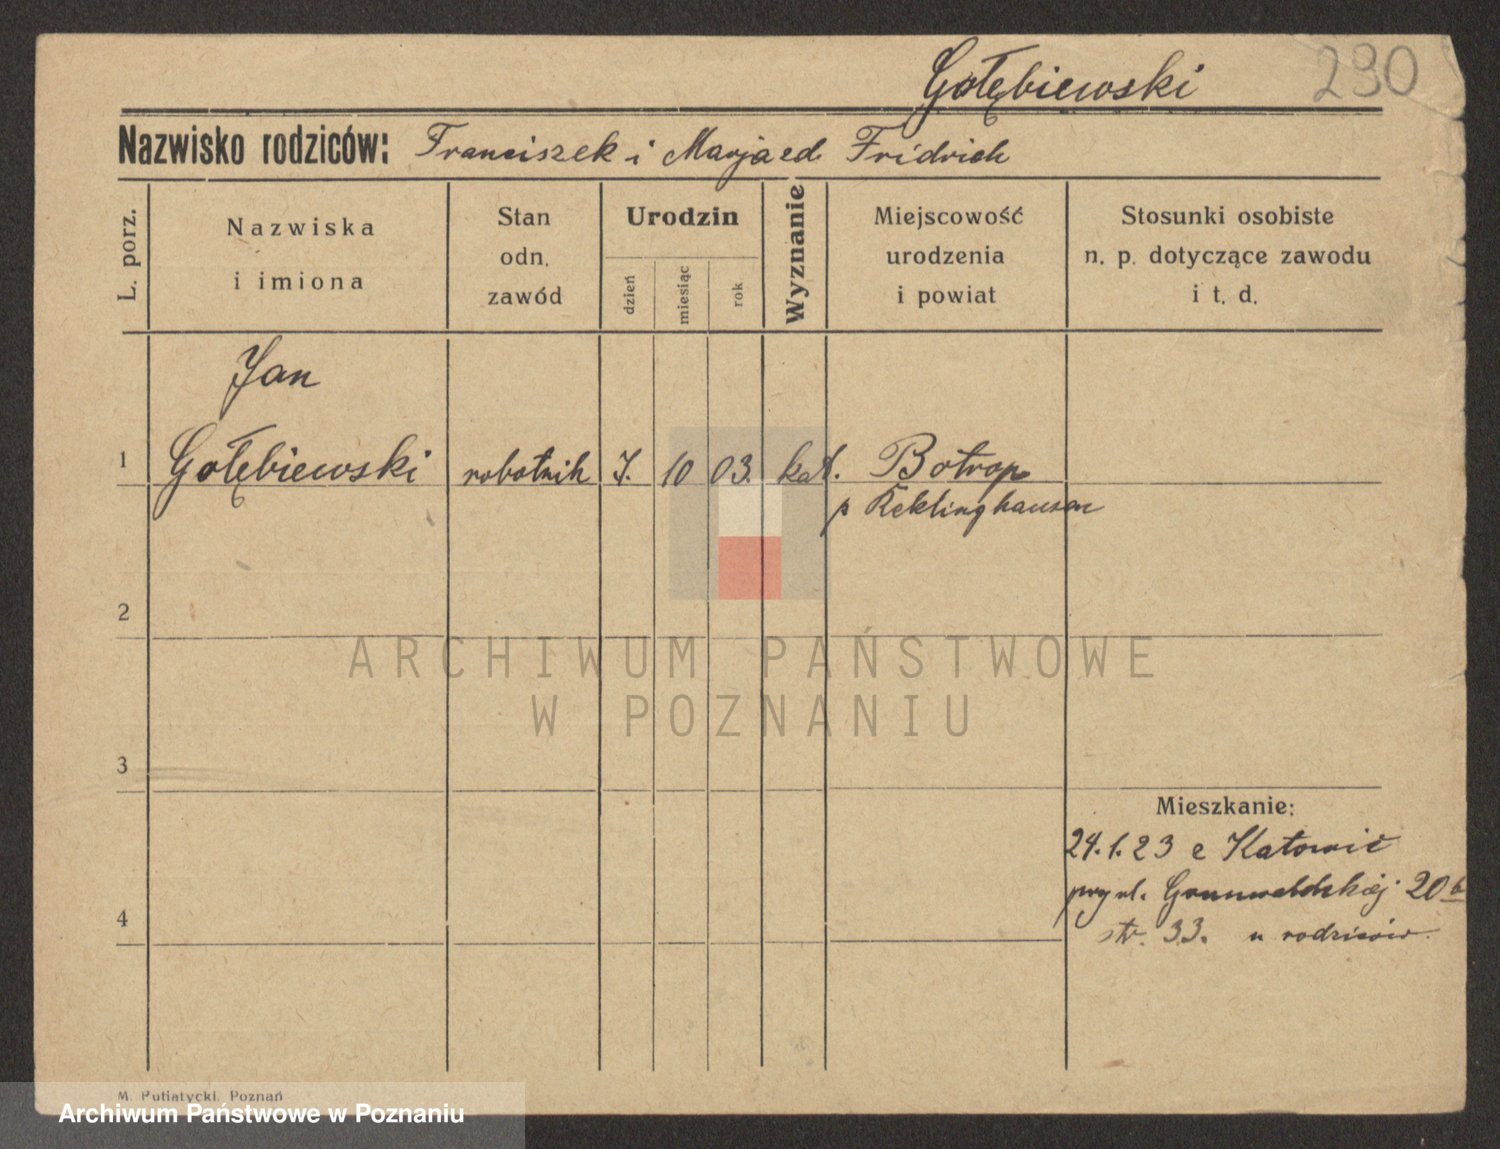 Gołębiewski 290
Nazwisko rodziców: Franciszek i Marja zd. Fridrich
L. porz.
Nazwiska
i imiona
Stan
odn.
zawód
Urodzin
dzień
miesiąc
rok
Wyznanie
Miejscowość
urodzenia
i powiat
Stosunki osobiste
n. p. dotyczące zawodu
i t. d.
Jan
1 Gołębiewski robotnik 7. 10 03. kat. Botrop
p Reklinghausen
2
ARCHIWUM PAŃSTWOWE
W POZNANIU
3
Mieszkanie:
24.1.23 z Katowic
przy ul. Grunwaldzkiej 20b
4
str. 33. u rodziców.
M. Putiatycki, Poznań
Archiwum Państwowe w Poznaniu